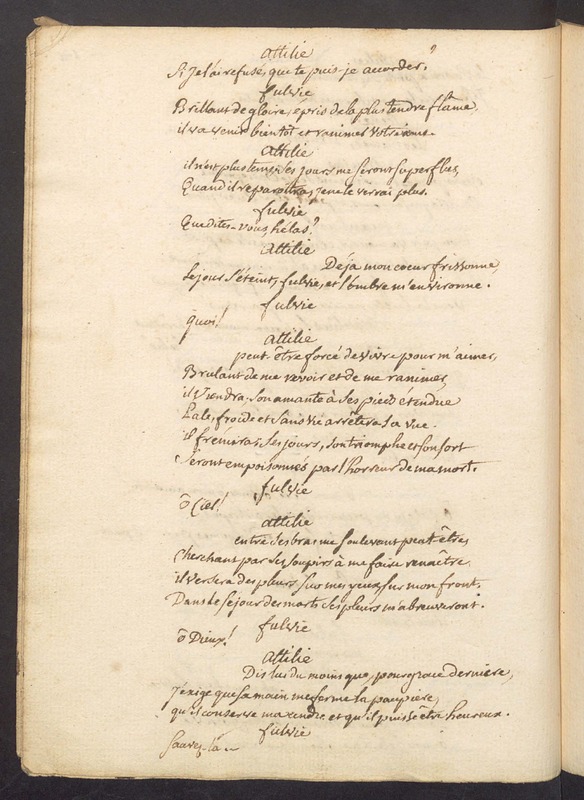 attilie
Si Je l'ai refusé, que te puis-je accorder?
fulvie
Brillant de gloire, épris de la plus tendre flame,
il va venir bientôt et ranimer votre âme.
attilie
il n'est plus tems, ses jours me seront superflus,
Quand il reparoitra, je ne le verrai plus.
fulvie
Que dites-vous, hélas?
attilie
Déja mon coeur frissonne,
Le jour s'éteint, fulvie, et l'ombre m'environne.
fulvie
quoi!
attilie
peut-être forcé de vivre pour m'aimer,
Brulant de me revoir et de me ranimer,
il Viendra, son amante à ses pieds étendue
Pale, froide et sans vie arrêtera sa vue.
il frémira, ses jours, son triomphe et son sort
Seront empoisonnés par l'horreur de ma mort.
fulvie
ô Ciel!
attilie
entre ses bras me soulevant peut être,
Cherchant par ses soupirs à me faire renaître,
il versera des pleurs sur mes yeux, sur mon front.
Dans le séjour des morts ses pleurs m'abreuveront.
fulvie
ô Dieux!
attilie
Dis lui du moins que, pour grace dernière,
J'exige que sa main me ferme la paupière,
qu'il conserve ma cendre et qu'il puisse être heureux.
fulvie
Sauvez-la